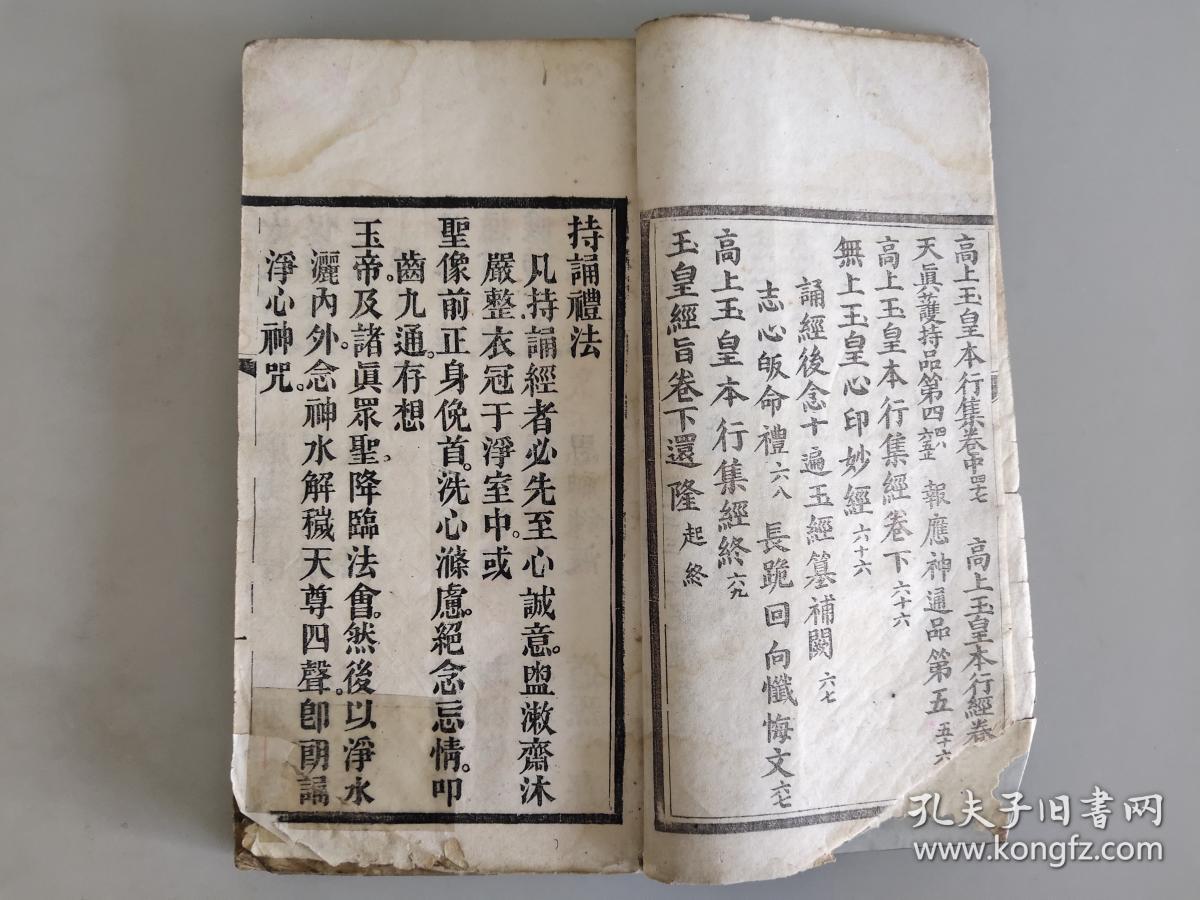 高上玉皇本行集卷中 高上玉皇本行經卷
天眞護持品第四 報應神通品第五 五十六
高上玉皇本行集經卷下 六十六
無上玉皇心印妙經 六十六
誦經後念十遍玉經篡補闕 六七
志心皈命禮 六八 長跪回向懺悔文 六七
高上玉皇本行集經終 六九
玉皇經旨卷下還隆 起終
持誦禮法
凡持誦經者必先至心誠意。盥漱齋沐
嚴整衣冠于淨室中。或
聖像前正身俛首。洗心滌慮。絕念忘情。叩
齒九通。存想
玉帝。及諸眞眾聖。降臨法會。然後以淨水
灑內外。念神水解穢天尊四聲。卽朗誦
淨心神咒。
孔夫子旧书网
www.kongfz.com